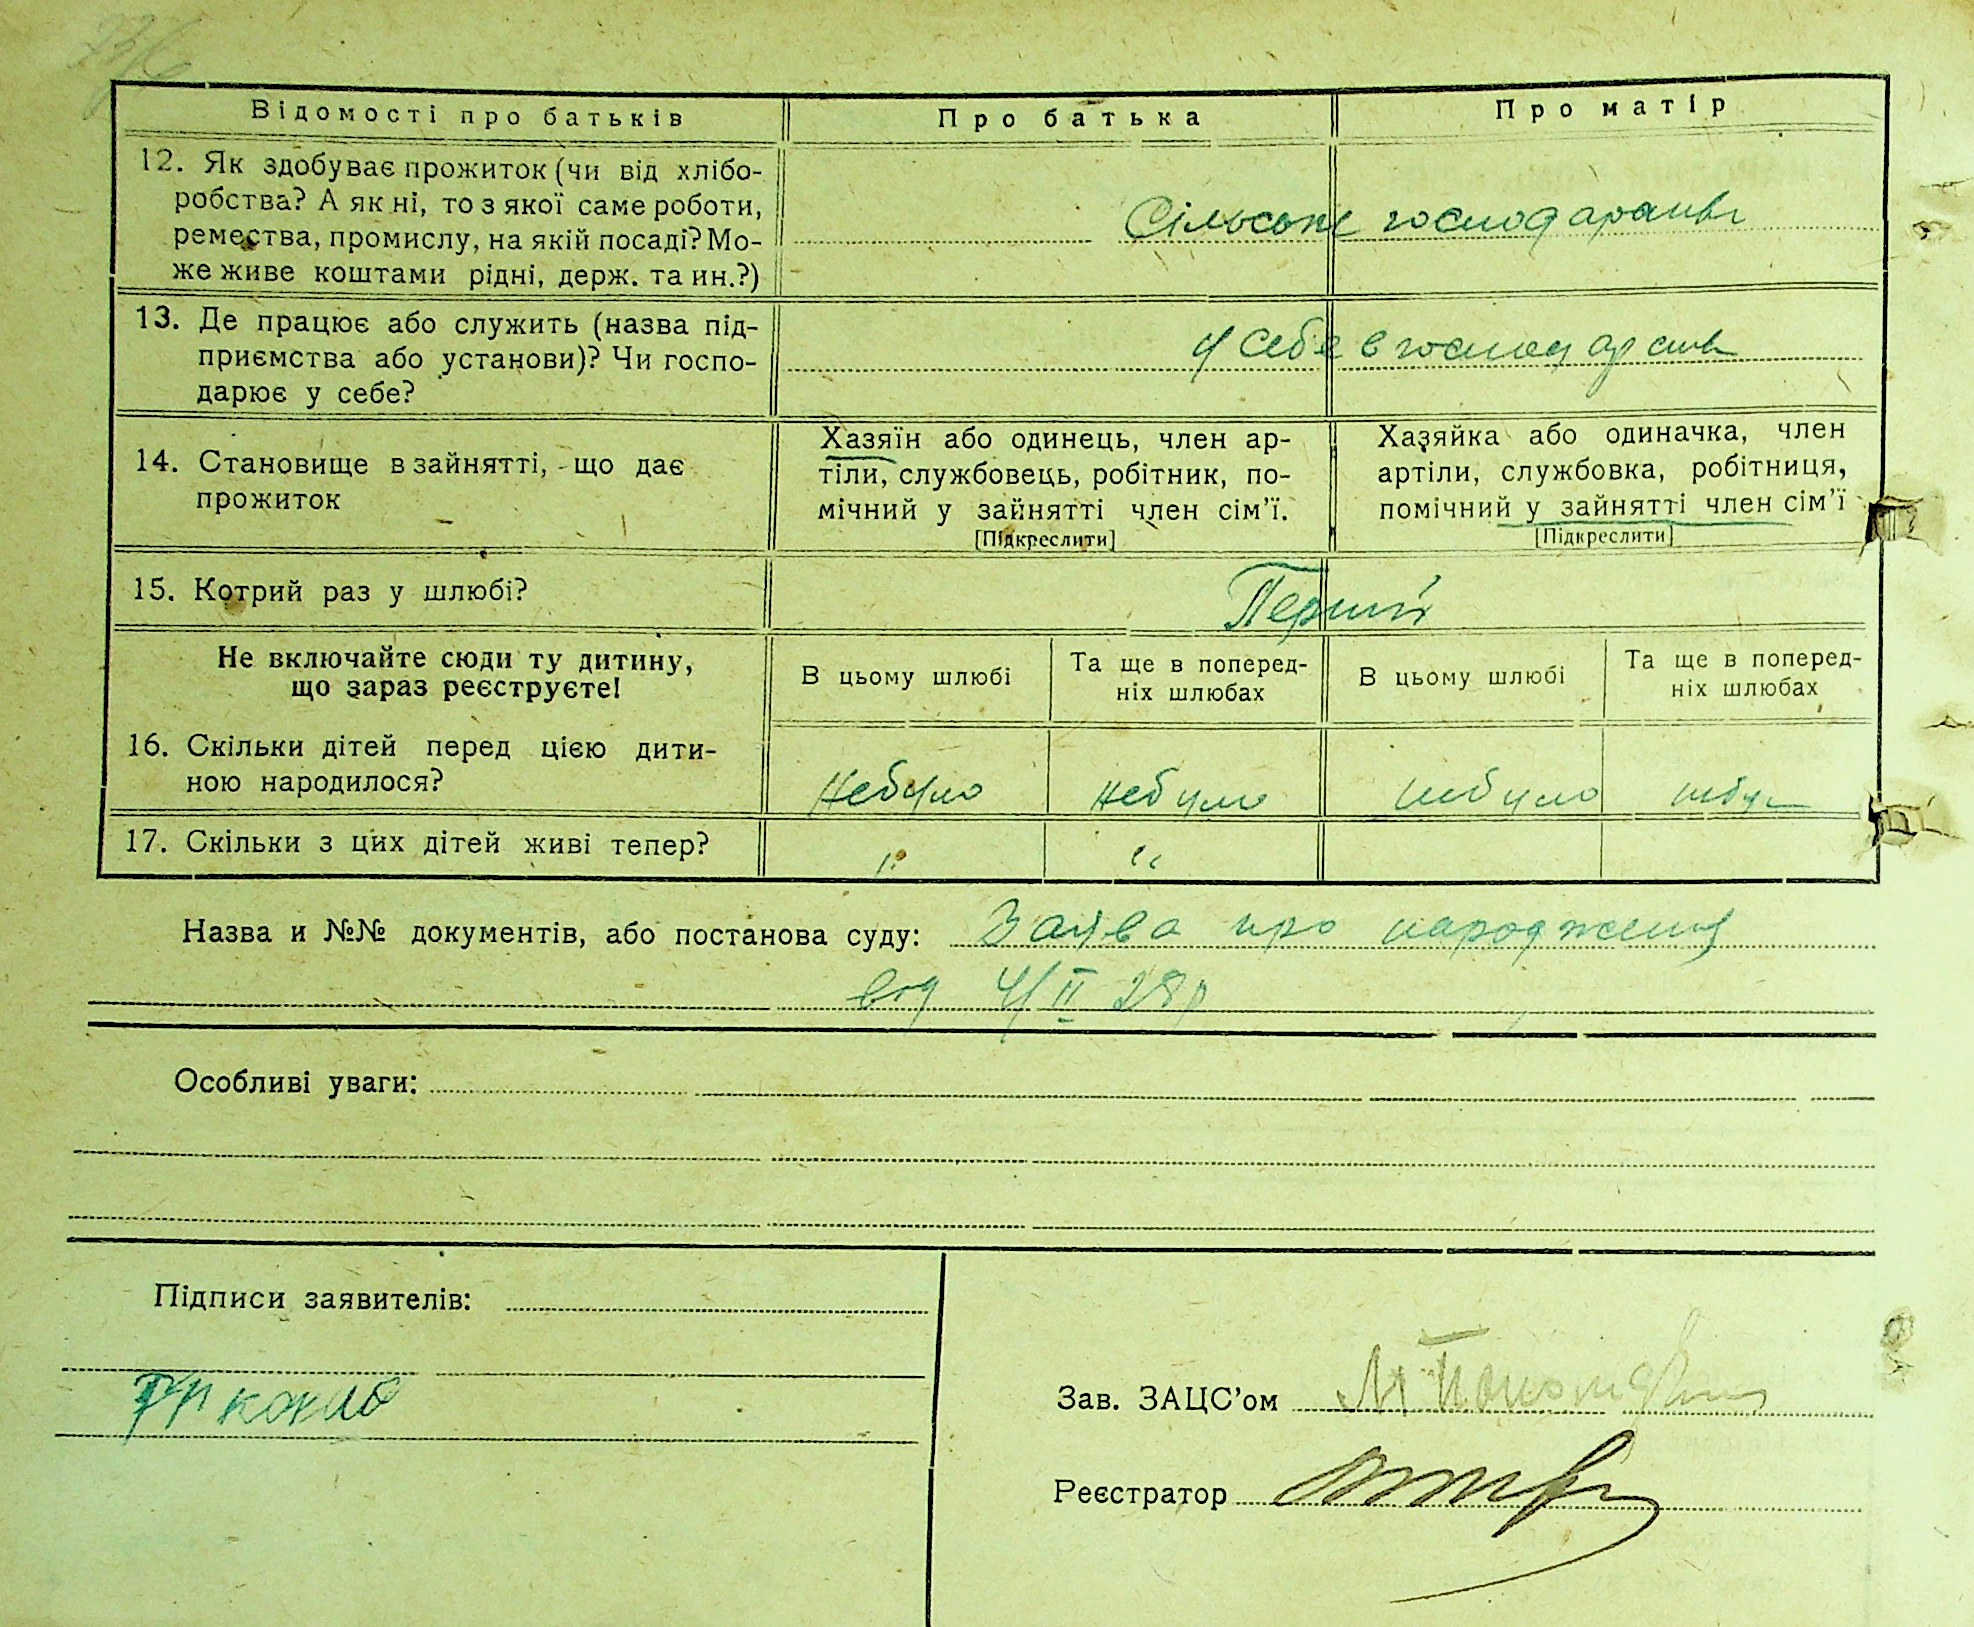 Відомості про батьків
Про батька
Про матір
12. Як здобуває прожиток (чи від хлібо-
робства? А як ні, то з якої саме роботи,
ремества, промислу, на якій посаді? Мо-
же живе коштами рідні, держ. та ин.?)
Сільське господарство
13. Де працює або служить (назва під-
приємства або установи)? Чи госпо-
дарює у себе?
у себе в господарстві
14. Становище в зайнятті, що дає
прожиток
Хазяїн або одинець, член ар-
тіли, службовець, робітник, по-
мічний у зайнятті член сім'ї.
[Підкреслити]
Хазяйка або одиначка, член
артіли, службовка, робітниця,
помічний у зайнятті член сім'ї
[Підкреслити]
15. Котрий раз у шлюбі?
Перший
Не включайте сюди ту дитину,
що зараз реєструєте!
В цьому шлюбі
Та ще в поперед-
ніх шлюбах
В цьому шлюбі
Та ще в поперед-
ніх шлюбах
16. Скільки дітей перед цією дити-
ною народилося?
небуло
небуло
небуло
17. Скільки з цих дітей живі тепер?
"
"
Назва и №№ документів, або постанова суду: Заява про народження
від 4/II 28р
Особливі уваги:
Підписи заявителів:
Зав. ЗАЦС'ом
Реєстратор